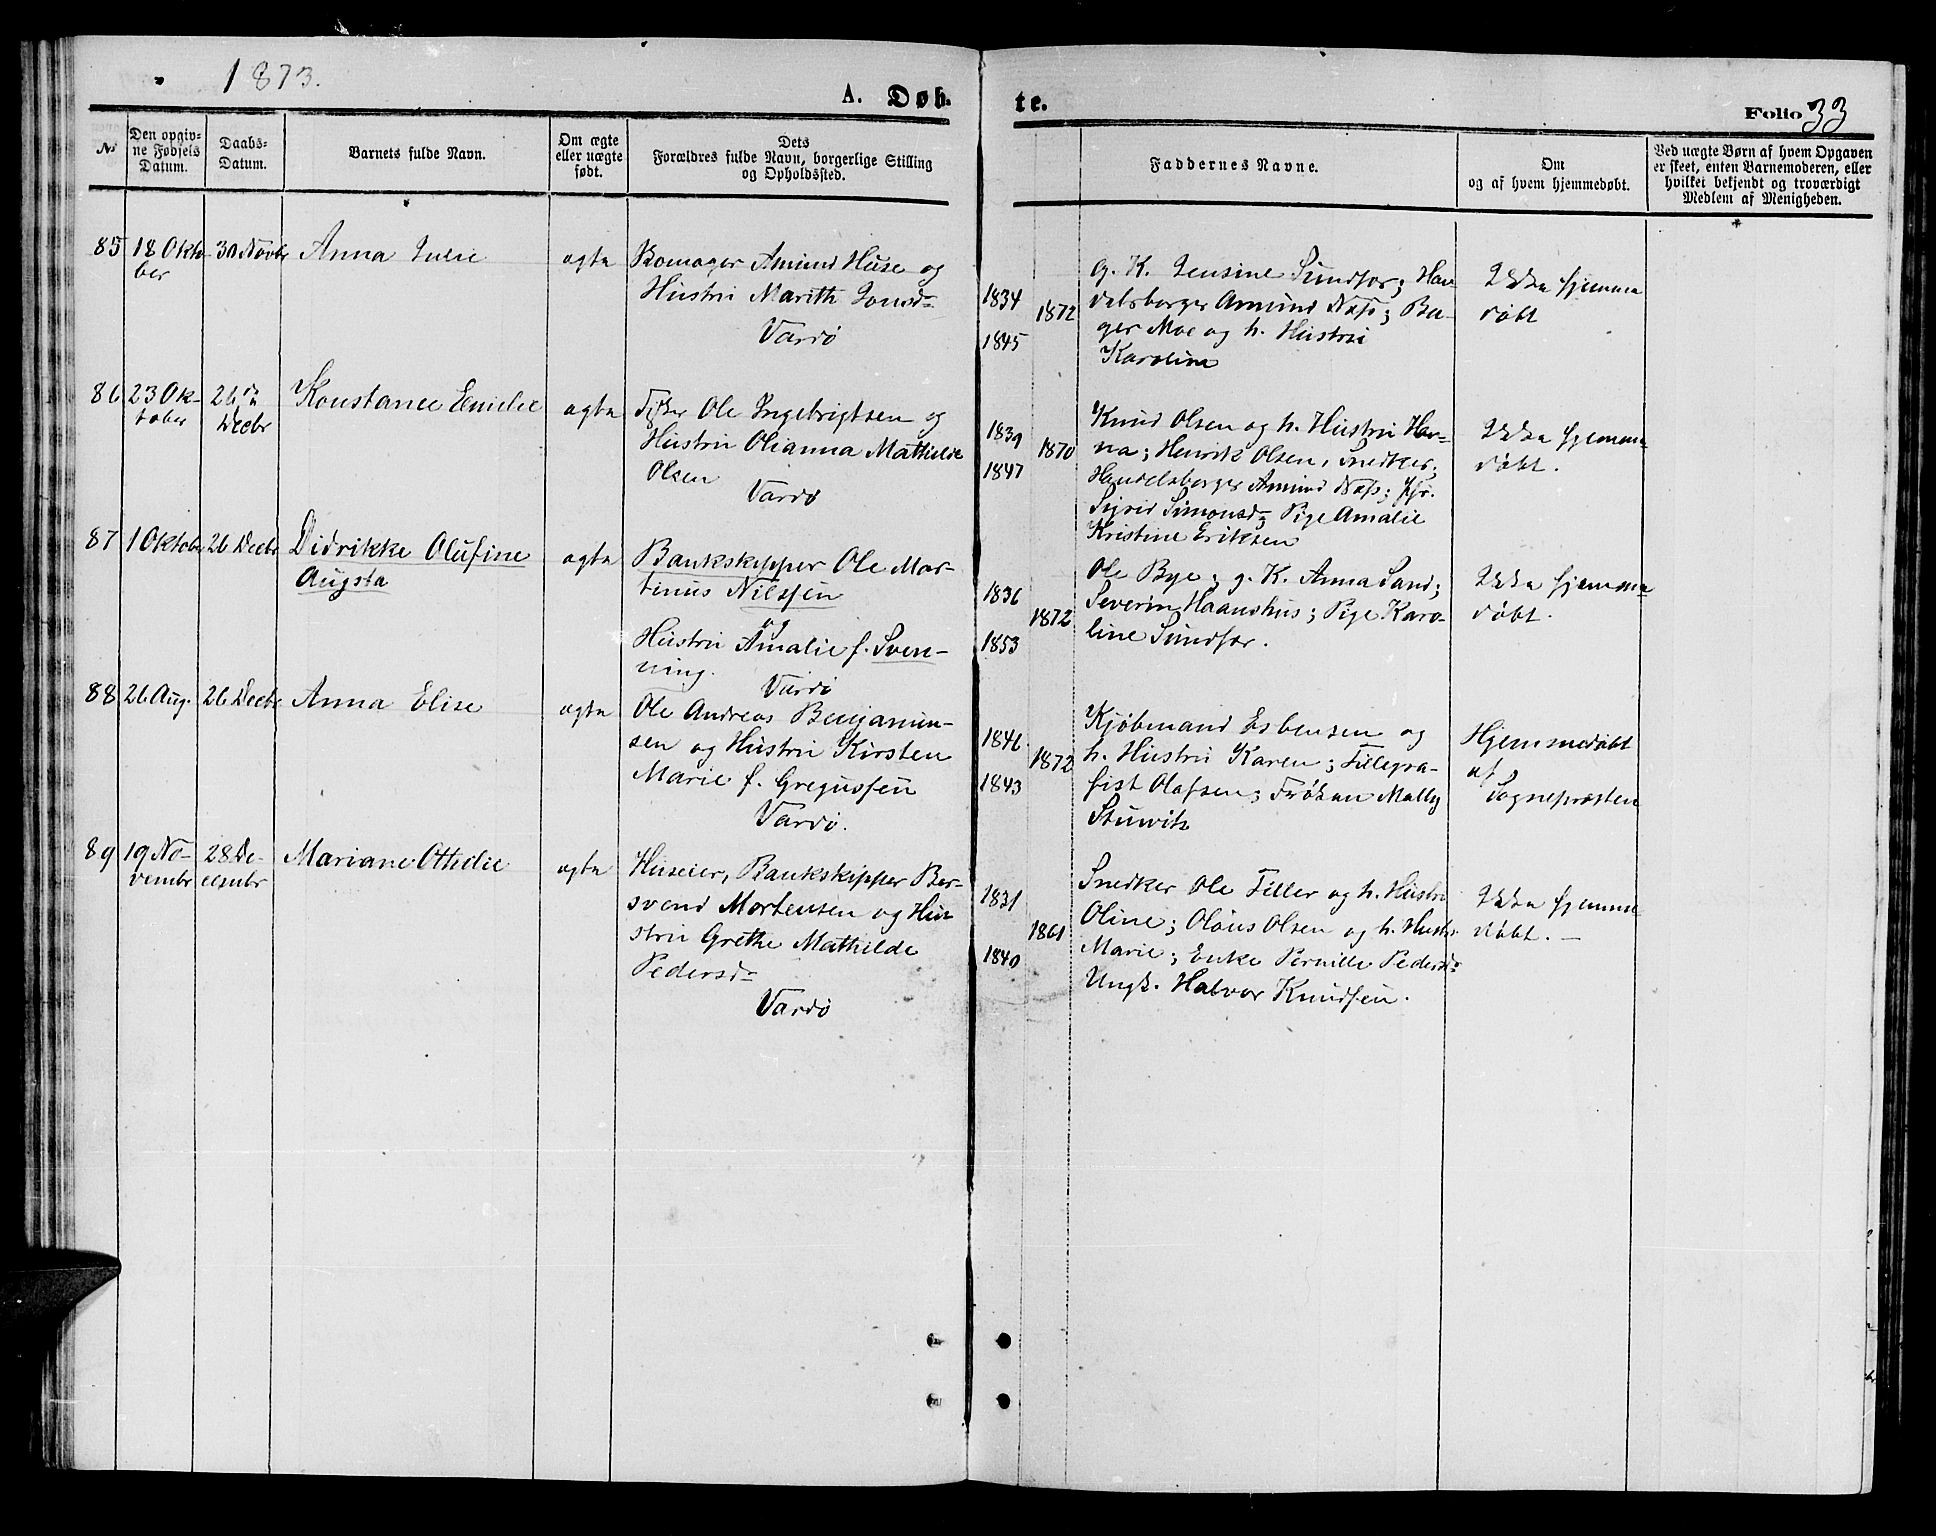 1873.
A. Døb-
te.
Folio 33
No
Den opgiv-
ne Fødsels
Datum.
Daabs-
Datum.
Barnets fulde Navn.
Om ægte
eller uægte
født.
Dets
Forældres fulde Navn, borgerlige Stilling
og Opholdssted.
Faddernes Navne.
Om
og af hvem hjemmedøbt.
Ved uægte Børn af hvem Opgaven
er skeet, enten Barnemoderen, eller
hvilket bekjendt og troværdigt
Medlem af Menigheden.
85
18 Okto-
ber
30 Novbr
Anna Julie
ægte
Amund Huse og
Hustru Marith Jonsd-
Vardø
1834
1845
1872
g. K. Jensine Sundfør; Han-
delsborger Amund Næss; Ba-
ger Moe og h. Hustru
Karoline
Ikke hjemme
døbt
86
23 Ok-
tober
26 de
Decbr
Konstance Emelie
ægte
Fisker Ole Ingebrigtsen og
Hustru Olianna Mathilde
Olsen
Vardø
1839
1847
1870
Knud Olsen og h. Hustru Han-
na; Henrik Olsen, Snedker;
Handelsborger Amund Næss;
Sigrid Simonsd; Pige Amalie
Kristine Eriksen
Ikke hjemme-
døbt.
87
1 Oktobr
26 Decbr
Didrikke Olufine
Augsta
ægte
Bankskipper Ole Mar-
tinus Nilssen
og
Hustru Amalie f. Sven-
ning.
Vardø
1836
1853
1872
Ole Bye; g. K. Anna Sand;
Severin Haanshus; Pige Karo-
line Sundfør.
Ikke hjemme
døbt.
88
26 Aug.
26 Decbr
Anna Elise
ægte
Ole Andreas Benjamin-
sen og Hustru Kirsten
Marie f. Gregussen
Vardø.
1846
1843
1872
Kjøbmand Esbensen og
h. Hustru Karen; Tillegra-
fist Olafsen; Frøken Mally
Stuwitz
Hjemmedøbt
af
Sognepræsten
89
19 No-
vembr
28 De-
cembr
Mariane Othelie
ægte
Huseier, Bankskipper Ber-
svend Mortensen og Hu-
stru Grethe Mathilde
Pedersd-
Vardø
1831
1840
1861
Snedker Ole Tiller og h. Hustru
Oline; Olaus Olsen og h. Hustr.
Marie; Enke Pernille Pedersd-
Ungk. Halvor Knudsen.
Ikke hjemme
døbt. —